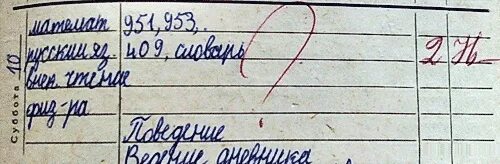 Суббота 10
математ 951, 953,.
русский яз. 409, словарь
внек. чтение
физ-ра
?
2 Н
Поведение
Ведение дневника